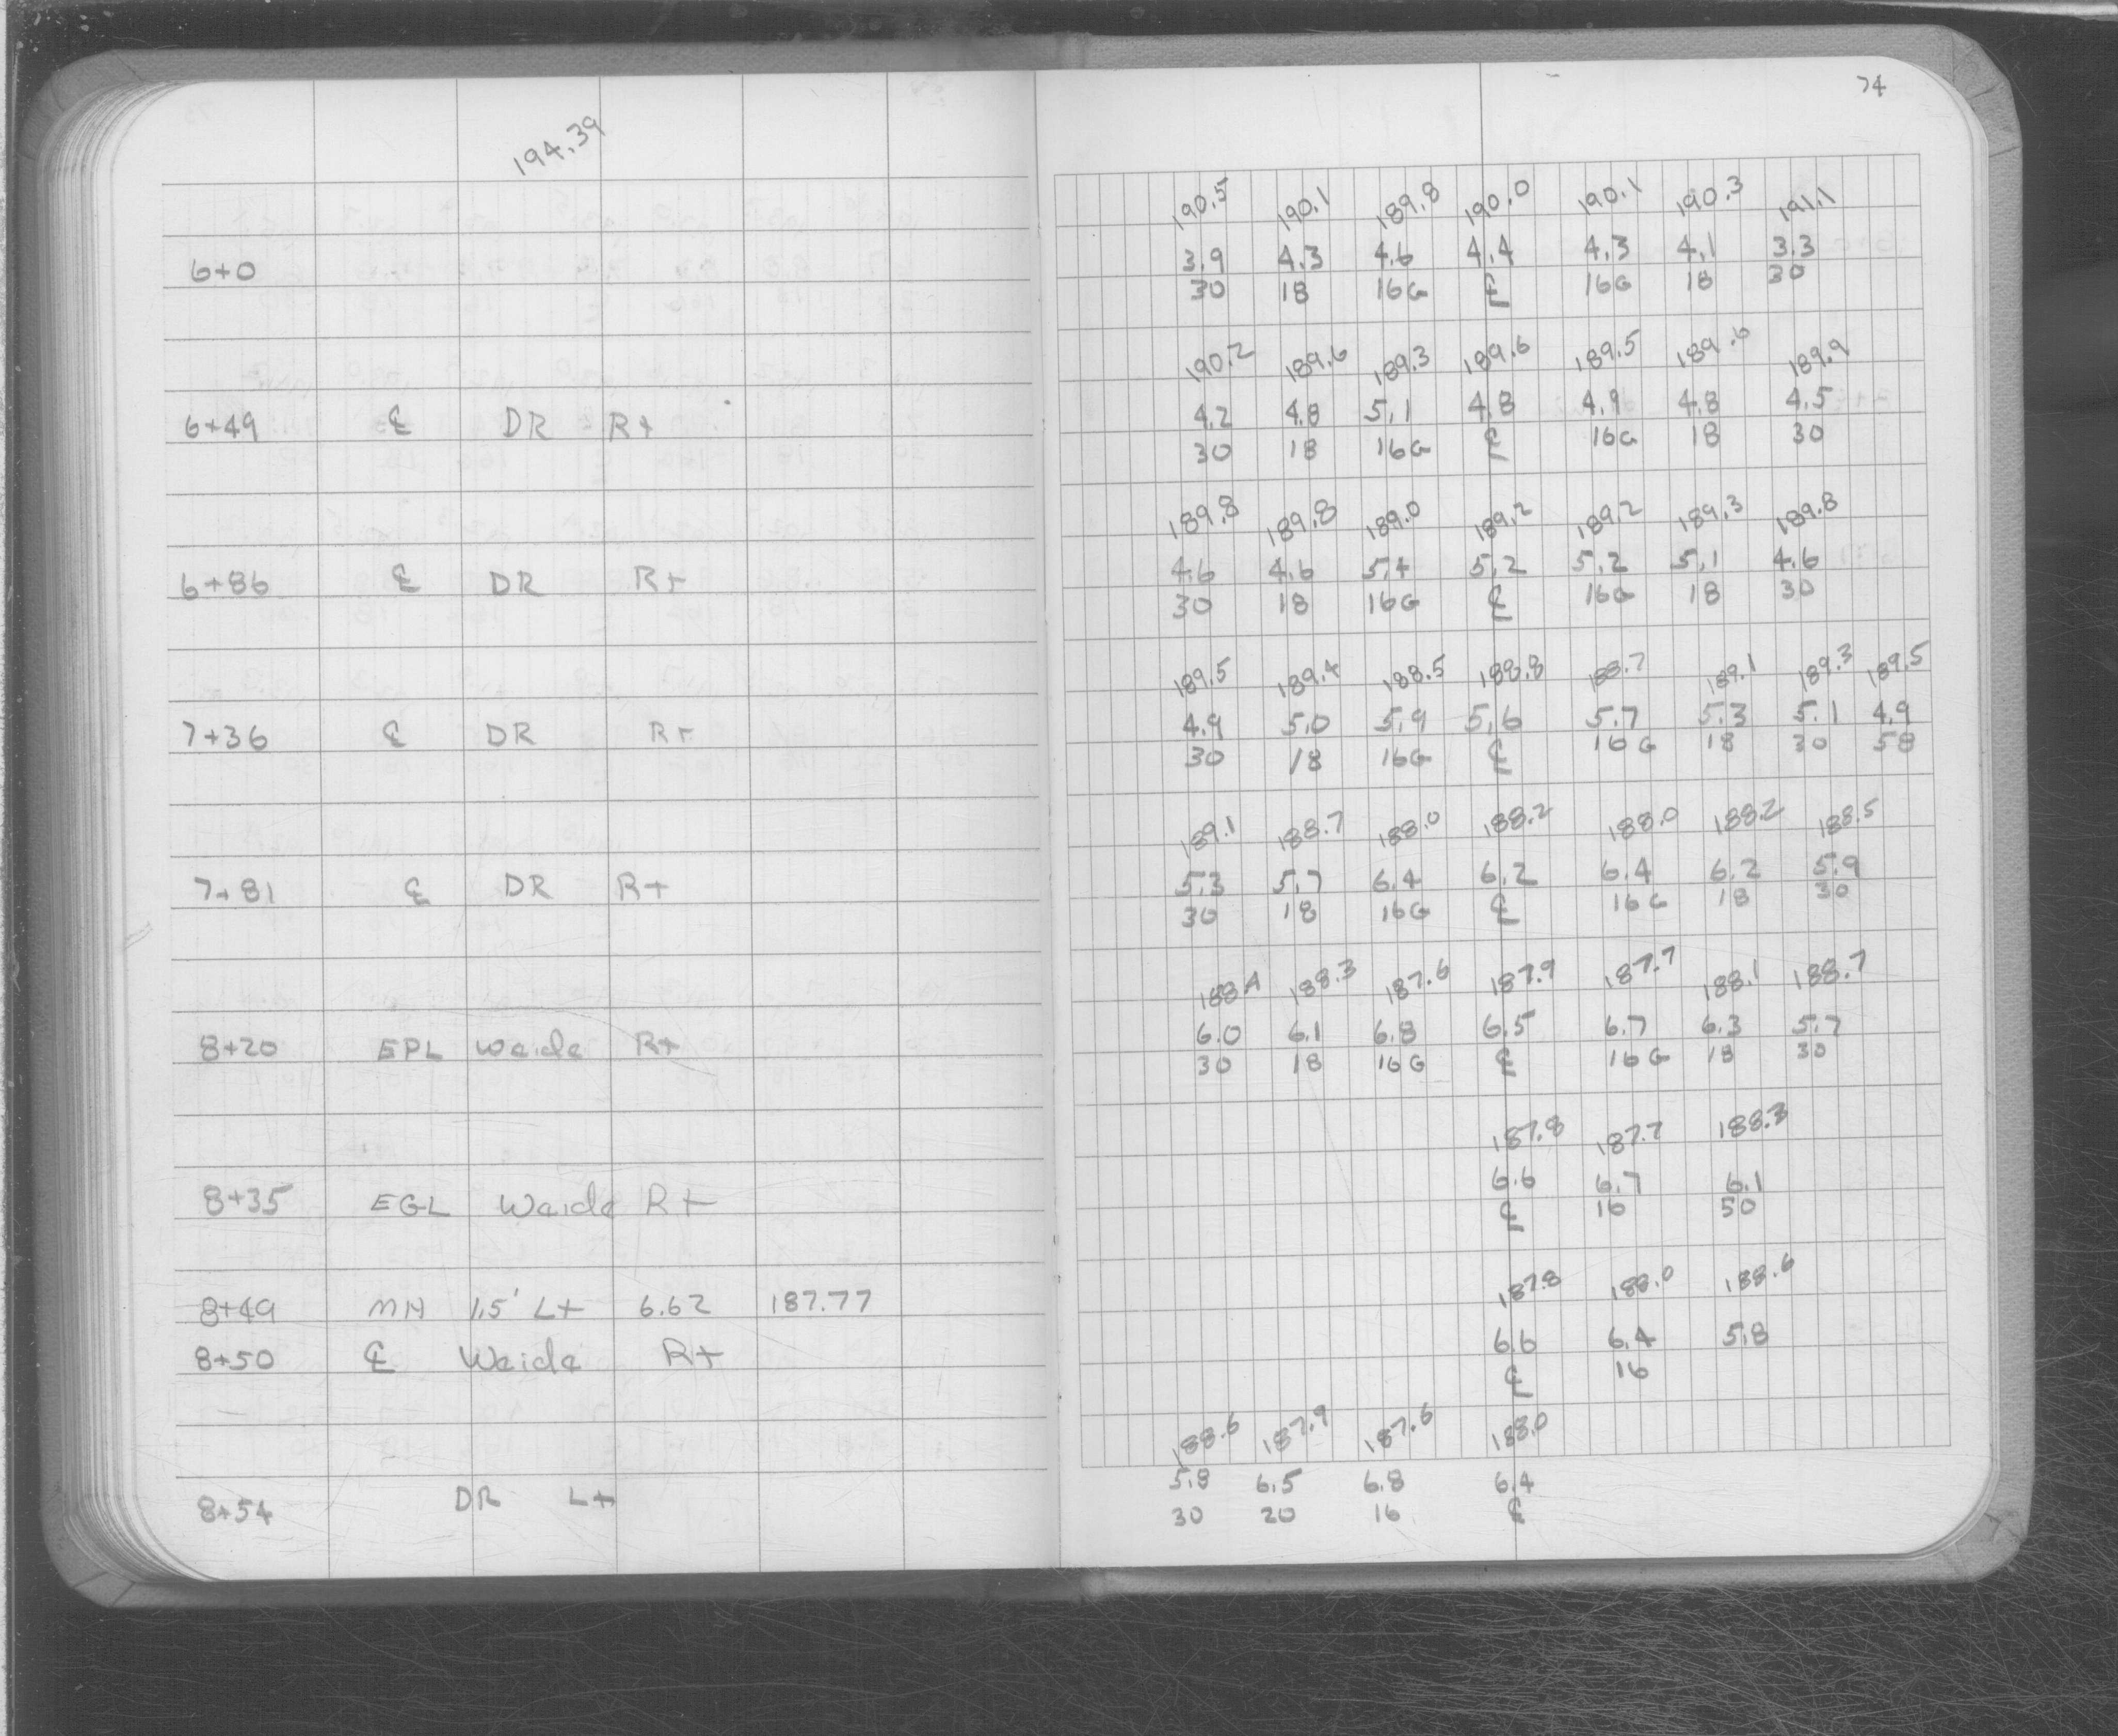 74
194.39
190.5 190.1 189.8 190.0 190.1 190.3 191.1
6+0 3.9 4.3 4.6 4.4 4.3 4.1 3.3
30 18 16G ℄ 16G 18 30
190.2 189.6 189.3 189.6 189.5 189.6 189.9
6+49 ℄ DR Rt 4.2 4.8 5.1 4.8 4.9 4.8 4.5
30 18 16G ℄ 16G 18 30
189.8 189.8 189.0 189.2 189.2 189.3 189.8
6+86 ℄ DR Rt 4.6 4.6 5.4 5.2 5.2 5.1 4.6
30 18 16G ℄ 16G 18 30
189.5 189.4 188.5 188.8 188.7 189.1 189.3 189.5
7+36 ℄ DR Rt 4.9 5.0 5.9 5.6 5.7 5.3 5.1 4.9
30 18 16G ℄ 16G 18 30 58
189.1 188.7 188.0 188.2 188.0 188.2 188.5
7+81 ℄ DR Rt 5.3 5.7 6.4 6.2 6.4 6.2 5.9
30 18 16G ℄ 16G 18 30
188.4 188.3 187.6 187.9 187.7 188.1 188.7
8+20 EPL Waide Rt 6.0 6.1 6.8 6.5 6.7 6.3 5.7
30 18 16G ℄ 16G 18 30
187.8 187.7 188.3
8+35 EGL Waide Rt 6.6 6.7 6.1
℄ 16 50
187.8 188.0 188.6
8+49 MH 1.5' Lt 6.62 187.77
8+50 ℄ Waide Rt 6.6 6.4 5.8
℄ 16
188.6 187.9 187.6 188.0
8+54 DR Lt 5.8 6.5 6.8 6.4
30 20 16 ℄